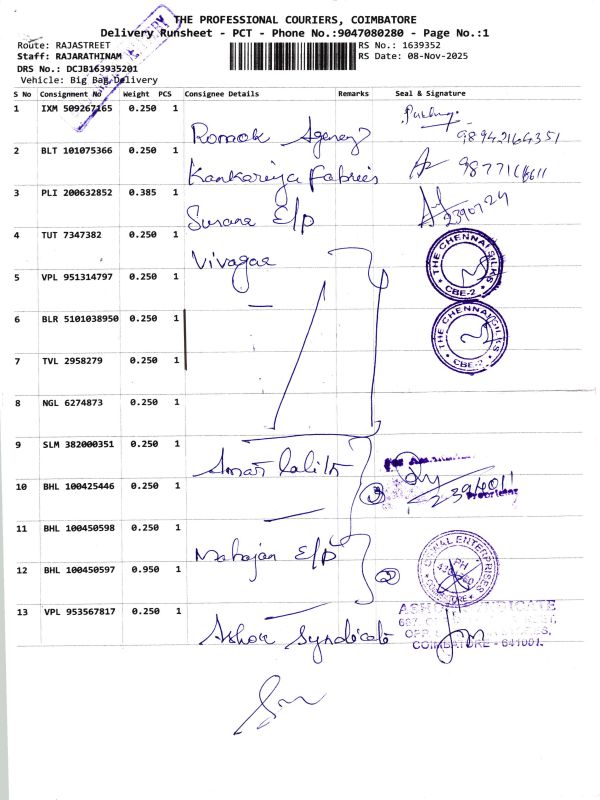 THE PROFESSIONAL COURIERS, COIMBATORE
Delivery Runsheet - PCT - Phone No.:9047080280 - Page No.:1
Route: RAJASTREET
RS No.: 1639352
Staff: RAJARATHINAM
RS Date: 08-Nov-2025
DRS No.: DCJB163935201
Vehicle: Big Bag Delivery
S No Consignment No Weight PCS Consignee Details Remarks Seal & Signature
1 IXM 509267165 0.250 1
Ronak Agency 98942164351
2 BLT 101075366 0.250 1
Kankariya Fabrics
3 PLI 200632852 0.385 1
Surana E/p 2390724
4 TUT 7347382 0.250 1
Vivagaa
THE CHENNAI SILKS
CBE-2
5 VPL 951314797 0.250 1
6 BLR 5101038950 0.250 1
THE CHENNAI SILKS
CBE-2
7 TVL 2958279 0.250 1
8 NGL 6274873 0.250 1
9 SLM 382000351 0.250 1
Amar lalith
10 BHL 100425446 0.250 1
3 2394011
Proprietor
11 BHL 100450598 0.250 1
Mahajan E/p
12 BHL 100450597 0.950 1
2
ENTERPRISES
13 VPL 953567817 0.250 1
Ashok Syndicate
ASHOK SYNDICATE
COIMBATORE - 641001.